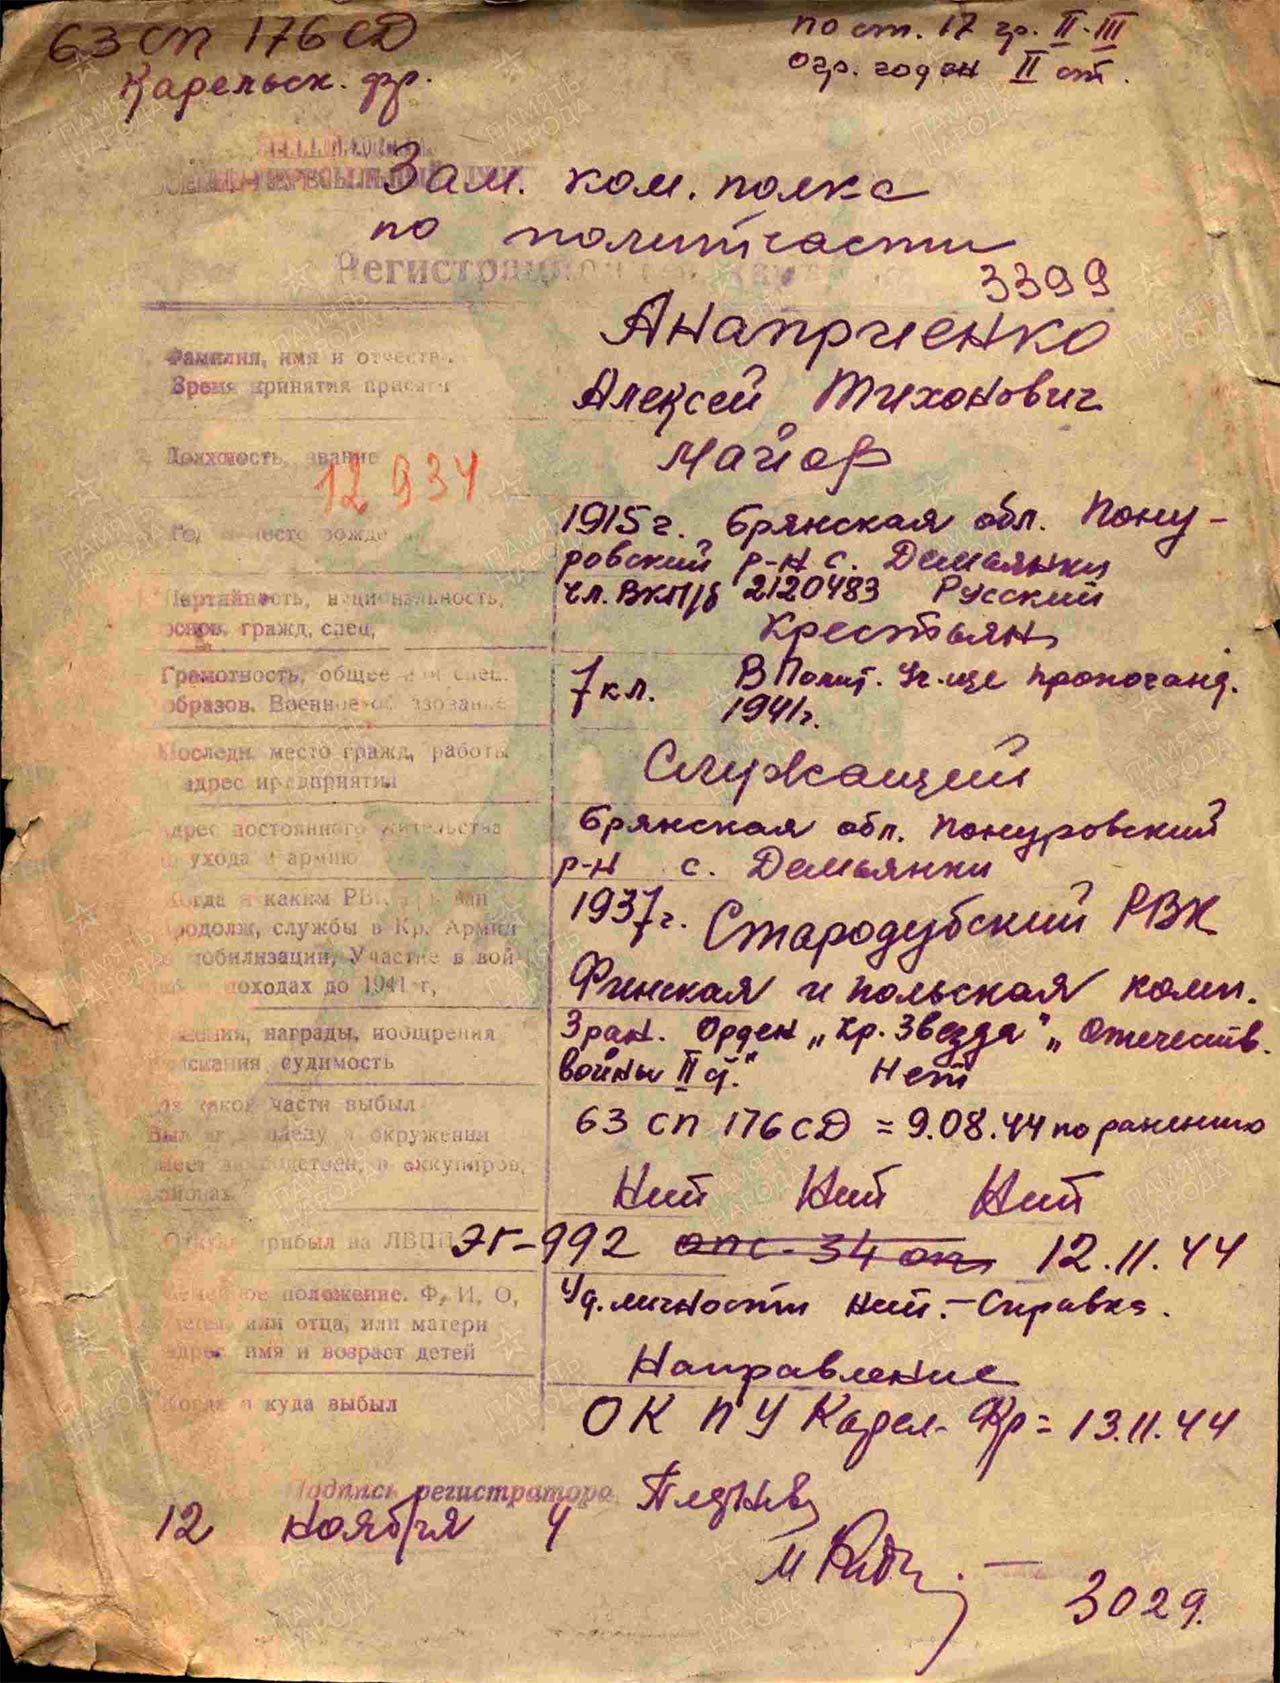 63 сп 176 СД
Карельск. фр.
по ст. 17 гр. II-III
огр. годен II ст.
Зам. ком. полка
по политчасти
Регистрационная
3399
Анаприенко
Фамилия, имя и отчество
Время принятия присяги
Алексей Тихонович
Должность, звание
Майор
12934
1915 г. Брянская обл. Пону-
ровский р-н с. Демьянки
Партийность, национальность,
основ. гражд. спец,
чл. ВКП/б 2120483 Русский
Крестьян
Грамотность, общее или спец.
образов. Военное образование
7 кл. В Полит. Уч-ще пропоганд.
1941 г.
Последн. место гражд, работы
адрес предприятия
Служащий
Адрес постоянного жительства
ухода в армию
Брянская обл. Понуровский
р-н с. Демьянки
Когда и каким РВК
продолж, службы в Кр. Армии
мобилизации, Участие в вой-
походах до 1941 г,
1937 г. Стародубский РВК
Финская и польская комп.
награды, поощрения
взыскания судимость
3 ран. Орден „Кр. Звезда" „Отечеств.
войны II ст." Нет
Из какой части выбыл
окружения
63 сп 176 СД = 9.08.44 по ранению
Нит Нит Нит
Откуда прибыл на ЛВПП
ЭГ-992 опс-34 оп 12.11.44
Семейное положение. Ф, И, О,
или отца, или матери
адрес имя и возраст детей
Уд. личности нит. - Справка.
Направление
Когда и куда выбыл
ОК ПУ Карел. Фр = 13.11.44
Подпись регистратора
12 ноября 4
3029.